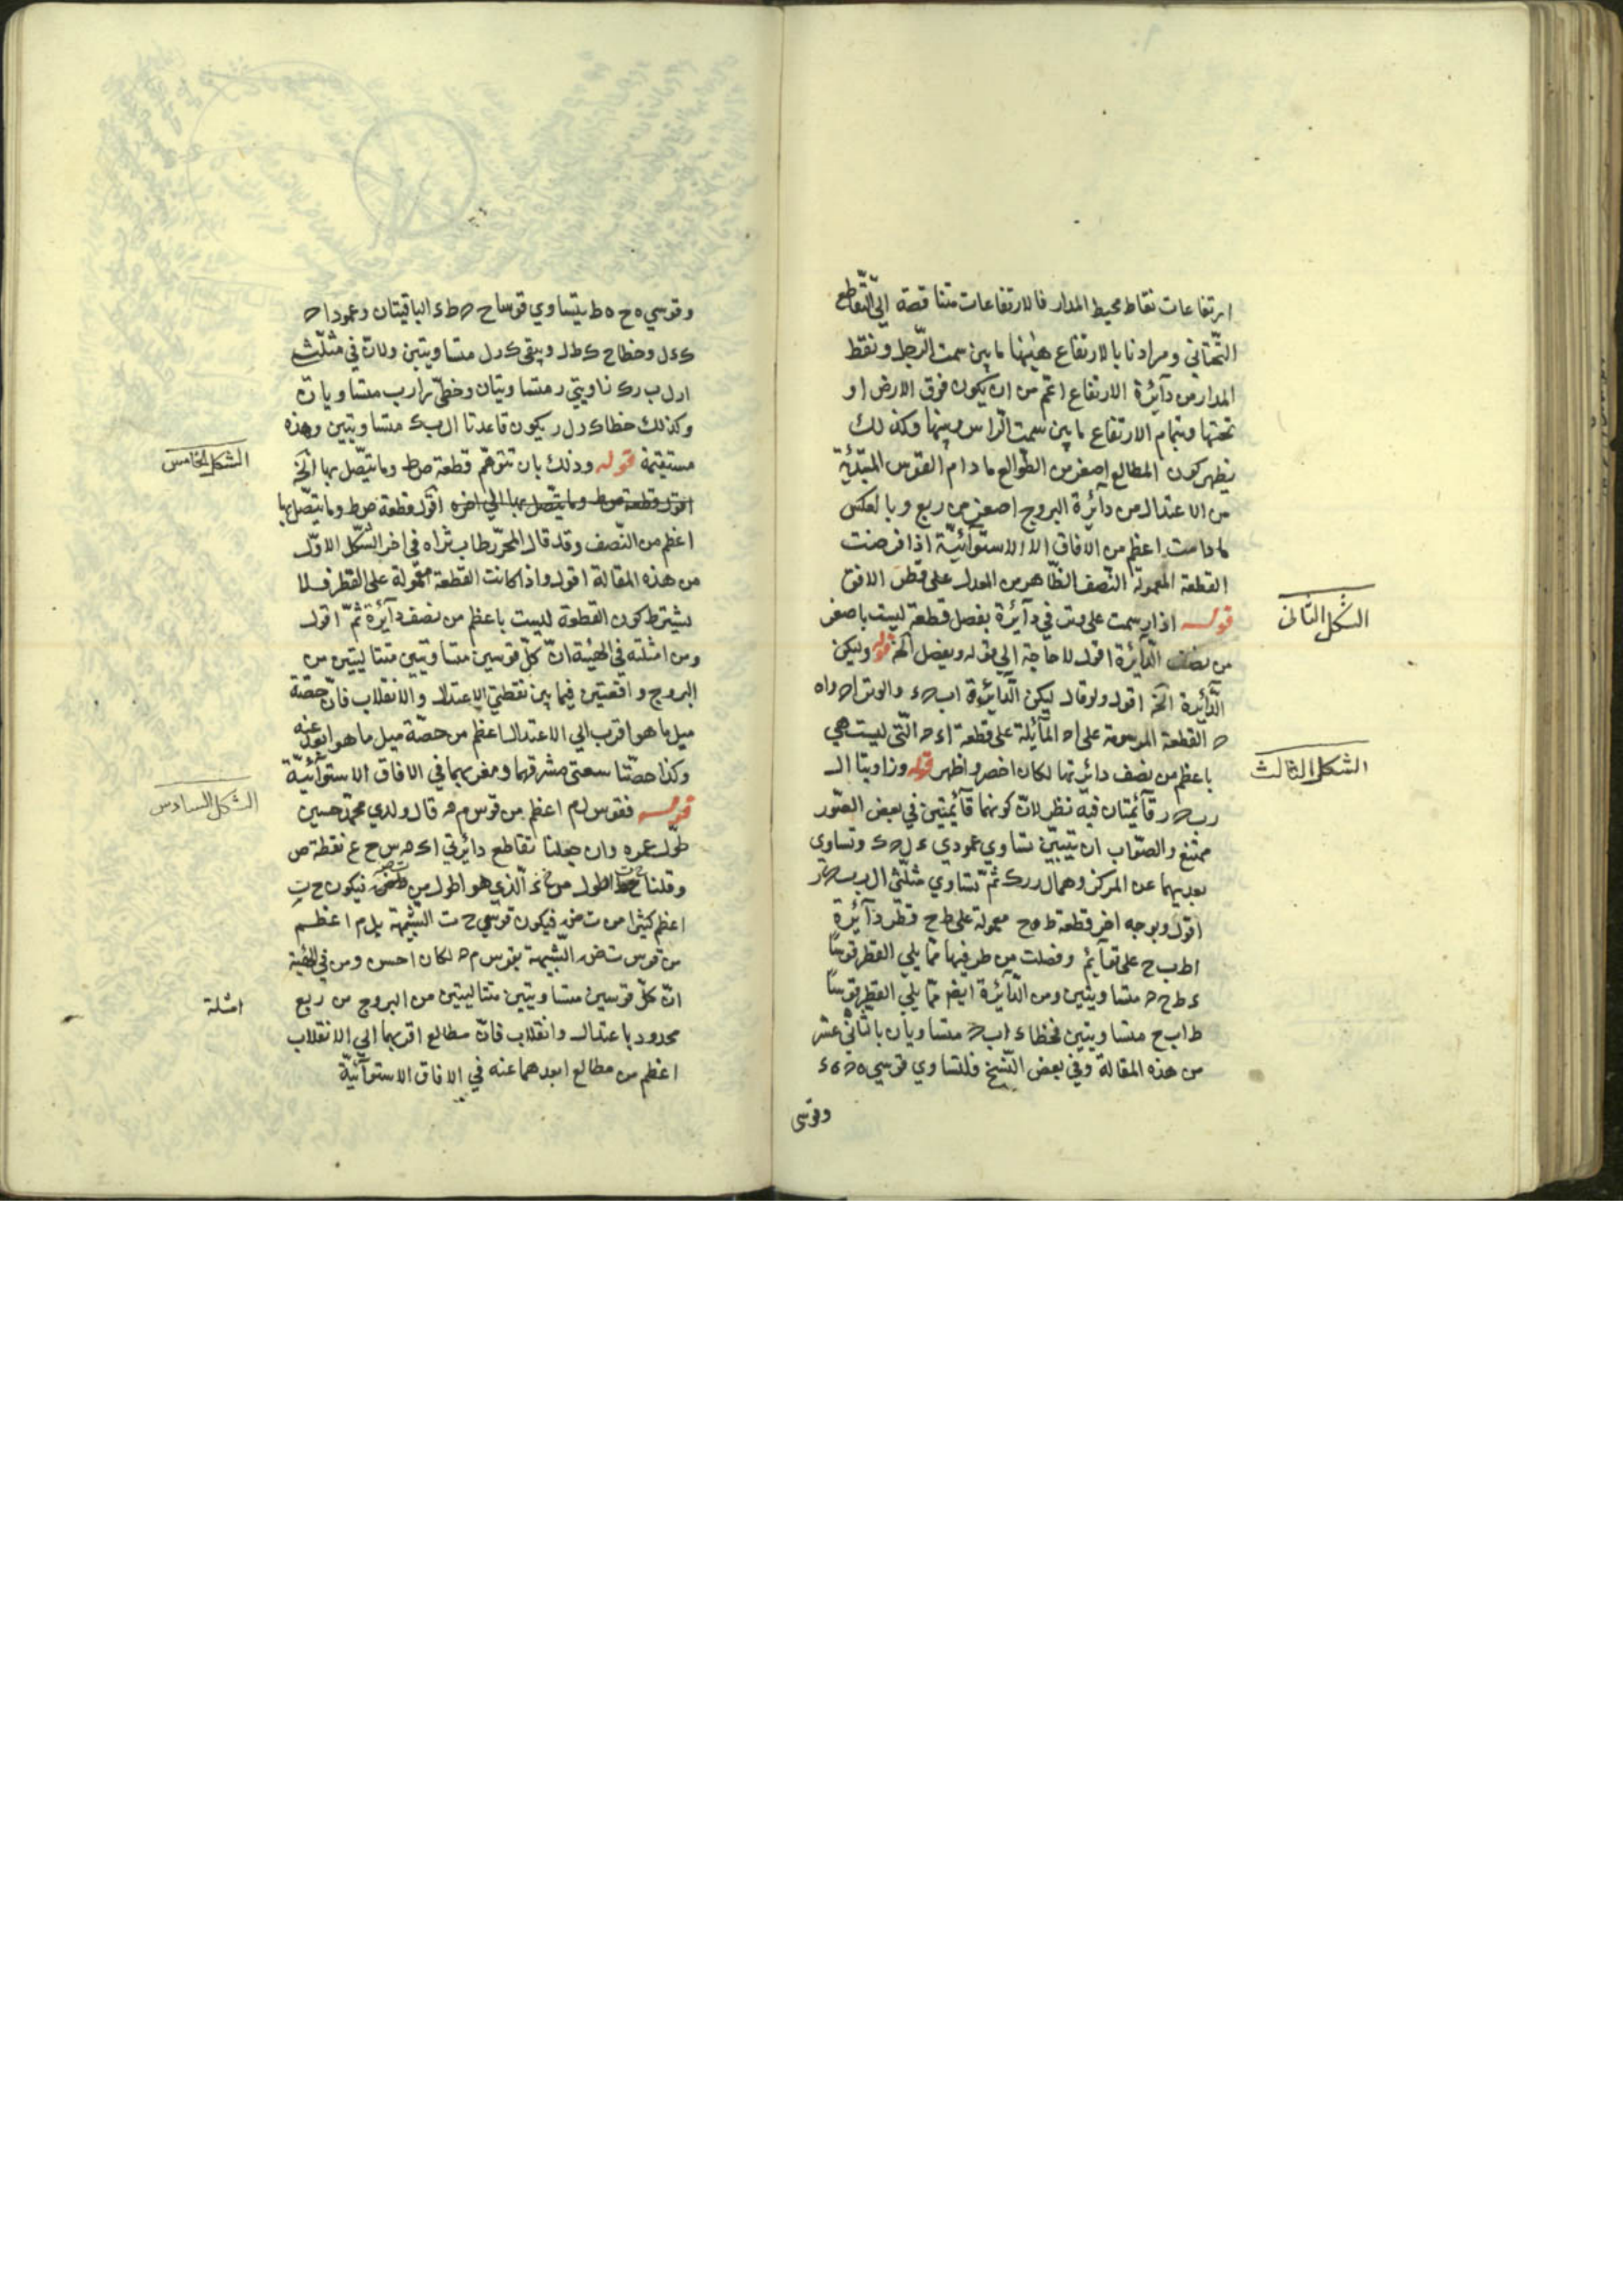 ارتفاعات نقاط محيط المدار فالارتفاعات متناقصة الى التقاطع
التحتاني ومرادنا بالارتفاع هيهنا ما بين سمت الرجل ونقط
المدار من دآئرة الارتفاع اعم من ان يكون فوق الارض او
تحتها وبتمام الارتفاع ما بين سمت الراس وبينها وكذلك
يظهر كون المطالع اصغر من الطوالع ما دام القوس المبتدئة
من الاعتدال من دآئرة البروج اصغر من ربع وبالعكس
ما دامت اعظم من الافاق الا الاستوآئية اذا فرضت
القطعة المعمولة النصف الظاهر من المعدل على قطر الافق
الشكل الثانى
قوله اذا رسمت على وتر في دآئرة يفصل قطعة ليست باصغر
من نصف الدآئرة اقول لا حاجة الى قوله ويفصل الخ قوله وليكن
الدآئرة الخ اقول ولو قال ليكن الدآئرة ا ب ح ء والوتر ا ح و ا ه
ح القطعة المرسومة على ا ح المآئلة على قطعة ا ء ح التى ليست هي
الشكل الثالث
باعظم من نصف دائرتها لكان اخصر واظهر قوله وزاويتا ا ل
ر ب ح ر قآئمتان فيه نظر لان كونهما قآئمتين في بعض الصور
ممتنع والصواب ان يتبين تساوي عمودي ء ل ح ك وتساوى
بعديهما عن المركز وهما ل ر ر ك ثم تساوي مثلثى ا ل ر ب ح ر
اقول وبوجه اخر قطعة ط ه ح معمولة على ط ح قطر دآئرة
ا ط ب ح على قوآئم وفصلت من طرفيها مما يلي القطر قوسا
ء ط ح ح متساويتين ومن الدآئرة ايضا مما يلي القطر قوسا
ط ا ب ح متساويتين فخطا ء ا ب ح متساويان بالثاني عشر
من هذه المقالة وفي بعض النسخ فلتساوي قوسي ه ح ه ء
وقوسى
وقوسي ه ح ه ط يتساوي قوسا ح ح ط ء الباقيتان وعمودا ح
ك ء ل وخطا ح ك ط ل ويبقى ك ر ل ر متساويتين ولان في مثلث
ا ر ل ب ر ك زاويتي ر متساويتان وخطى ر ا ر ب متساويان
وكذلك خطا ك ر ل ر يكون قاعدتا ا ل ب ك متساويتين وهذه
الشكل الخامس
مستقيمة قوله وذلك بان نتوهم قطعة ص ط وما يتصل بها الخ
اقول قطعة ص ط وما يتصل بها الى اخره اقول قطعة ص ط وما يتصل بها
اعظم من النصف وقد قال المحرر طاب ثراه في اخر الشكل الاول
من هذه المقالة اقول واذا كانت القطعة معمولة على القطر فلا
يشترط كون القطعة ليست باعظم من نصف دآئرة ثم اقول
ومن امثلته في الهيئة ان كل قوسين متساويتين متتاليتين من
البروج واقعتين فيما بين نقطتي الاعتدال والانقلاب فان حصة
ميل ما هو اقرب الى الاعتدال اعظم من حصة ميل ما هو ابعد عنه
وكذا حصتا سعتى مشرقهما ومغربهما في الافاق الاستوآئية
الشكل السادس
قوله فقوس ل م اعظم من قوس م ه قال ولدي محمد حسين
طول عمره وان جعلنا تقاطع دائرتي ا ك ه س ح ع نقطة ص
اعظم كثيرا من ت ض فيكون قوسي ح ت الشبيهة بل م اعظم
من قوس ت ض الشبيهة بقوس م ه لكان احسن ومن في الهيئة
امثلة
ان كل قوسين متساويتين متتاليتين من البروج من ربع
محدود باعتدال وانقلاب فان مطالع اقربهما الى الانقلاب
اعظم من مطالع ابعدهما عنه في الافاق الاستوآئية